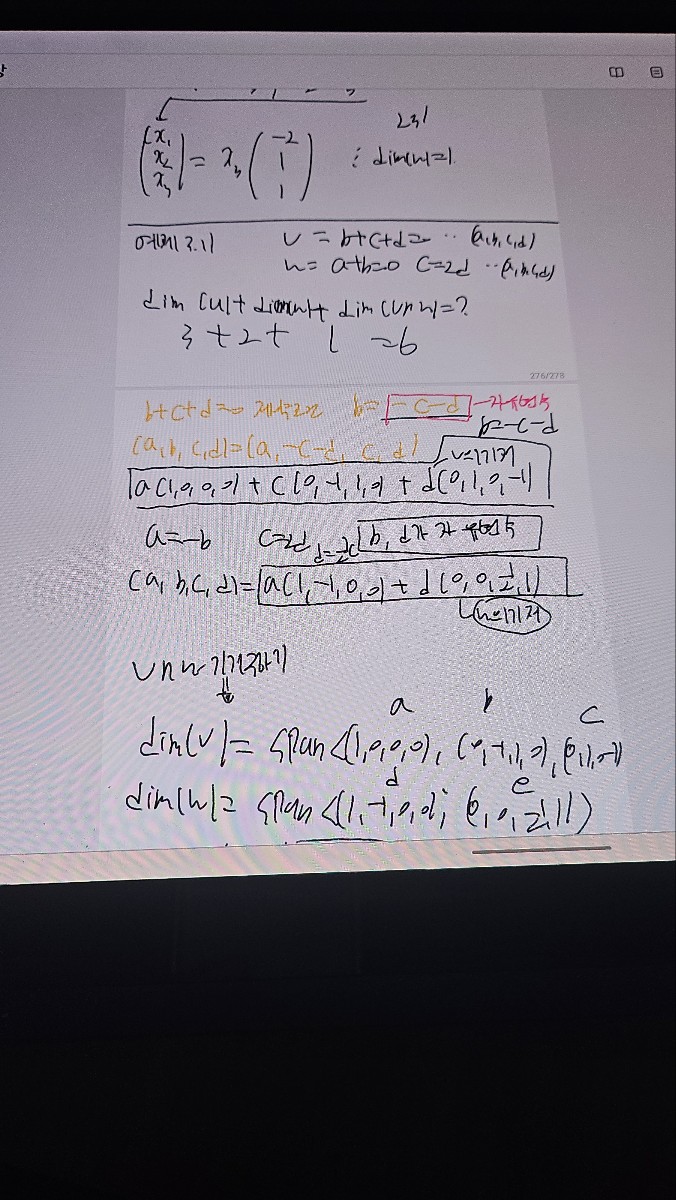 (x₁ x₂ x₃) = x₃ (-2 1 1) ∴ dim(W)=1
예제 2.1) V = b+c+d=0 ·· (a,b,c,d)
W = a+b=0 c=2d ·· (a,b,c,d)
dim(V)+dim(W)+dim(V∩W)=?
3 + 2 + 1 = 6
276/278
b+c+d=0 b= -c-d
b=-c-d
(a,b,c,d)=(a,-c-d,c,d)
V의 기저
a(1,0,0,0) + c(0,-1,1,0) + d(0,1,0,-1)
a=-b c=2d d=½c b, d가 자유변수
(a,b,c,d)= a(1,-1,0,0) + d(0,0,½,1)
W의 기저
V∩W
a b c
dim(V)= span<(1,0,0,0), (0,-1,1,0), (0,1,0,-1)
d e
dim(W)= span<(1,-1,0,0), (0,0,½,1)>